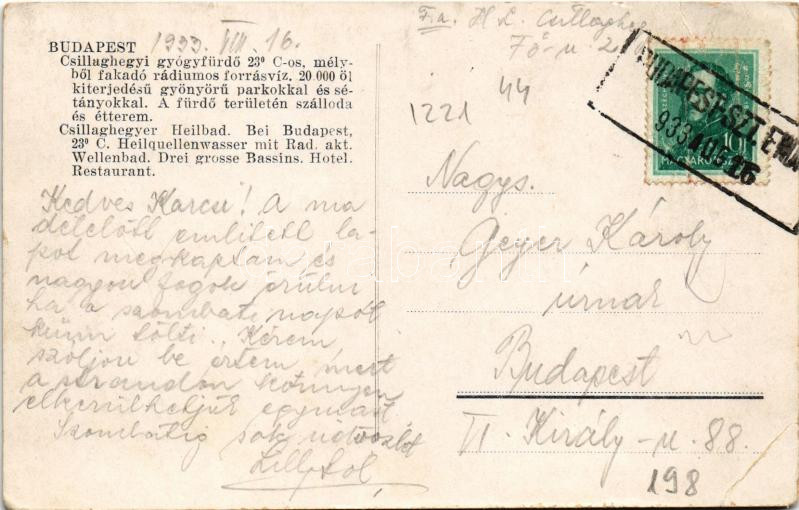 BUDAPEST 1933. VIII. 16.
Csillaghegyi gyógyfürdő 23⁰ C-os, mély-
ből fakadó rádiumos forrásvíz. 20.000 öl
kiterjedésű gyönyörű parkokkal és sé-
tányokkal. A fürdő területén szálloda
és étterem.
Csillaghegyer Heilbad. Bei Budapest,
23⁰ C. Heilquellenwasser mit Rad. akt.
Wellenbad. Drei grosse Bassins. Hotel.
Restaurant.
Kedves Karcsi! A ma
délelőtt említett la-
pot megkaptam és
nagyon fogok örülni
ha a szombati napot
künn tölti. Kérem
szóljon be értem, mert
a strandon könnyen
elkerülhetjük egymást.
Szombatig sok üdvözlet
F.a. H. L. Csillaghegy
Fő-u 2
1221 44
BUDAPEST-SZT.END
933 AUG 26
10f
MAGYARO
Nagys.
Geyer Károly
úrnak
Budapest
VI. Király-u. 88.
198